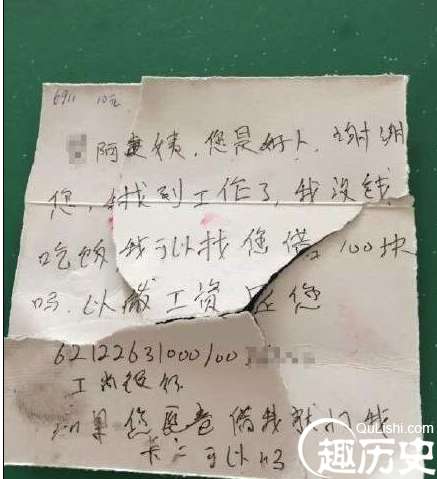 6911 10元
阿姨，您是好人，谢谢
您，我找到工作了，我没钱
吃饭我可以找您借100块
吗，以工资还您
62122631000100
工商银行
如果您愿意借我就打我
卡上可以吗
QuLishi.com
趣历史